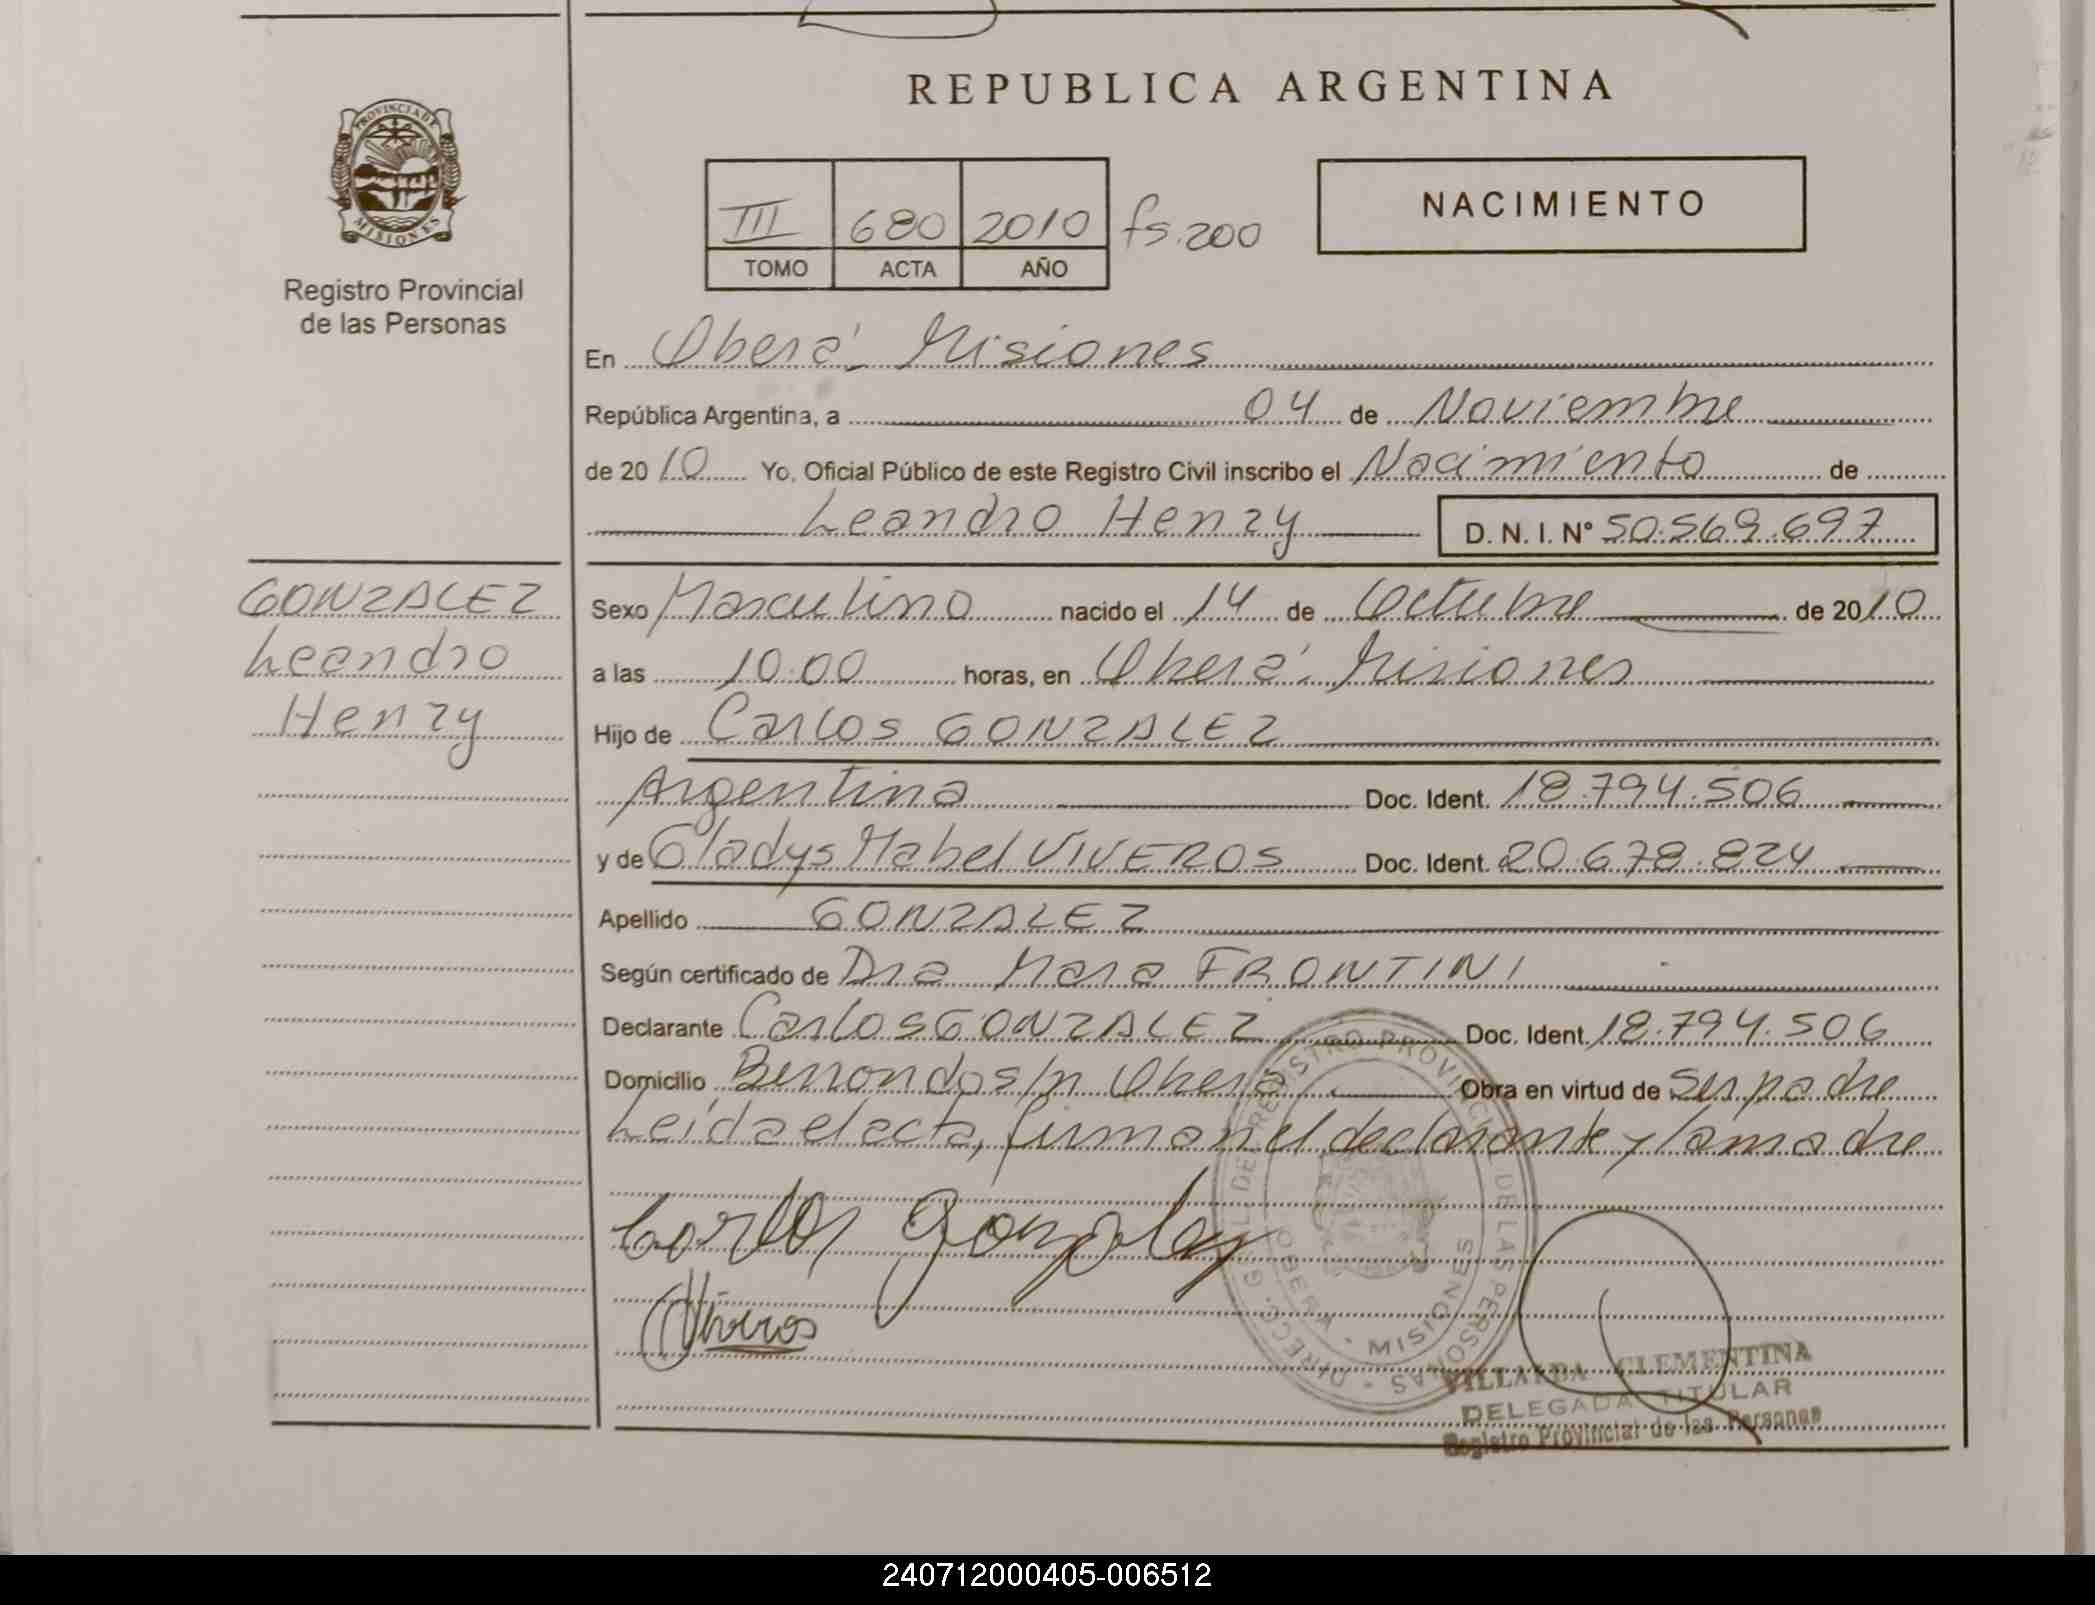 REPUBLICA ARGENTINA
PROVINCIA DE
MISIONES
Registro Provincial
de las Personas
III 680 2010 fs.200
TOMO ACTA AÑO
NACIMIENTO
En Oberá Misiones
República Argentina, a 04 de Noviembre
de 2010 Yo, Oficial Público de este Registro Civil inscribo el Nacimiento de
Leandro Henry D. N. I. Nº 50.569.697
GONZALEZ
Leandro
Henry
Sexo Masculino nacido el 14 de Octubre de 2010
a las 10.00 horas, en Oberá. Misiones
Hijo de Carlos GONZALEZ
Argentina Doc. Ident. 18.794.506
y de Gladys Mabel VIVEROS Doc. Ident. 20.678.824
Apellido GONZALEZ
Según certificado de Dra Mara FRONTINI
Declarante Carlos GONZALEZ Doc. Ident. 18.794.506
Domicilio Berrondo s/n Oberá Obra en virtud de ser padre
Leída el acta, firman el declarante y la madre
Carlos Gonzalez
Viveros
DIRECC. GRAL. DE REGISTRO PROVINCIAL DE LAS PERSONAS
OBERA - MISIONES
VILLALBA CLEMENTINA
DELEGADA TITULAR
Registro Provincial de las Personas
240712000405-006512